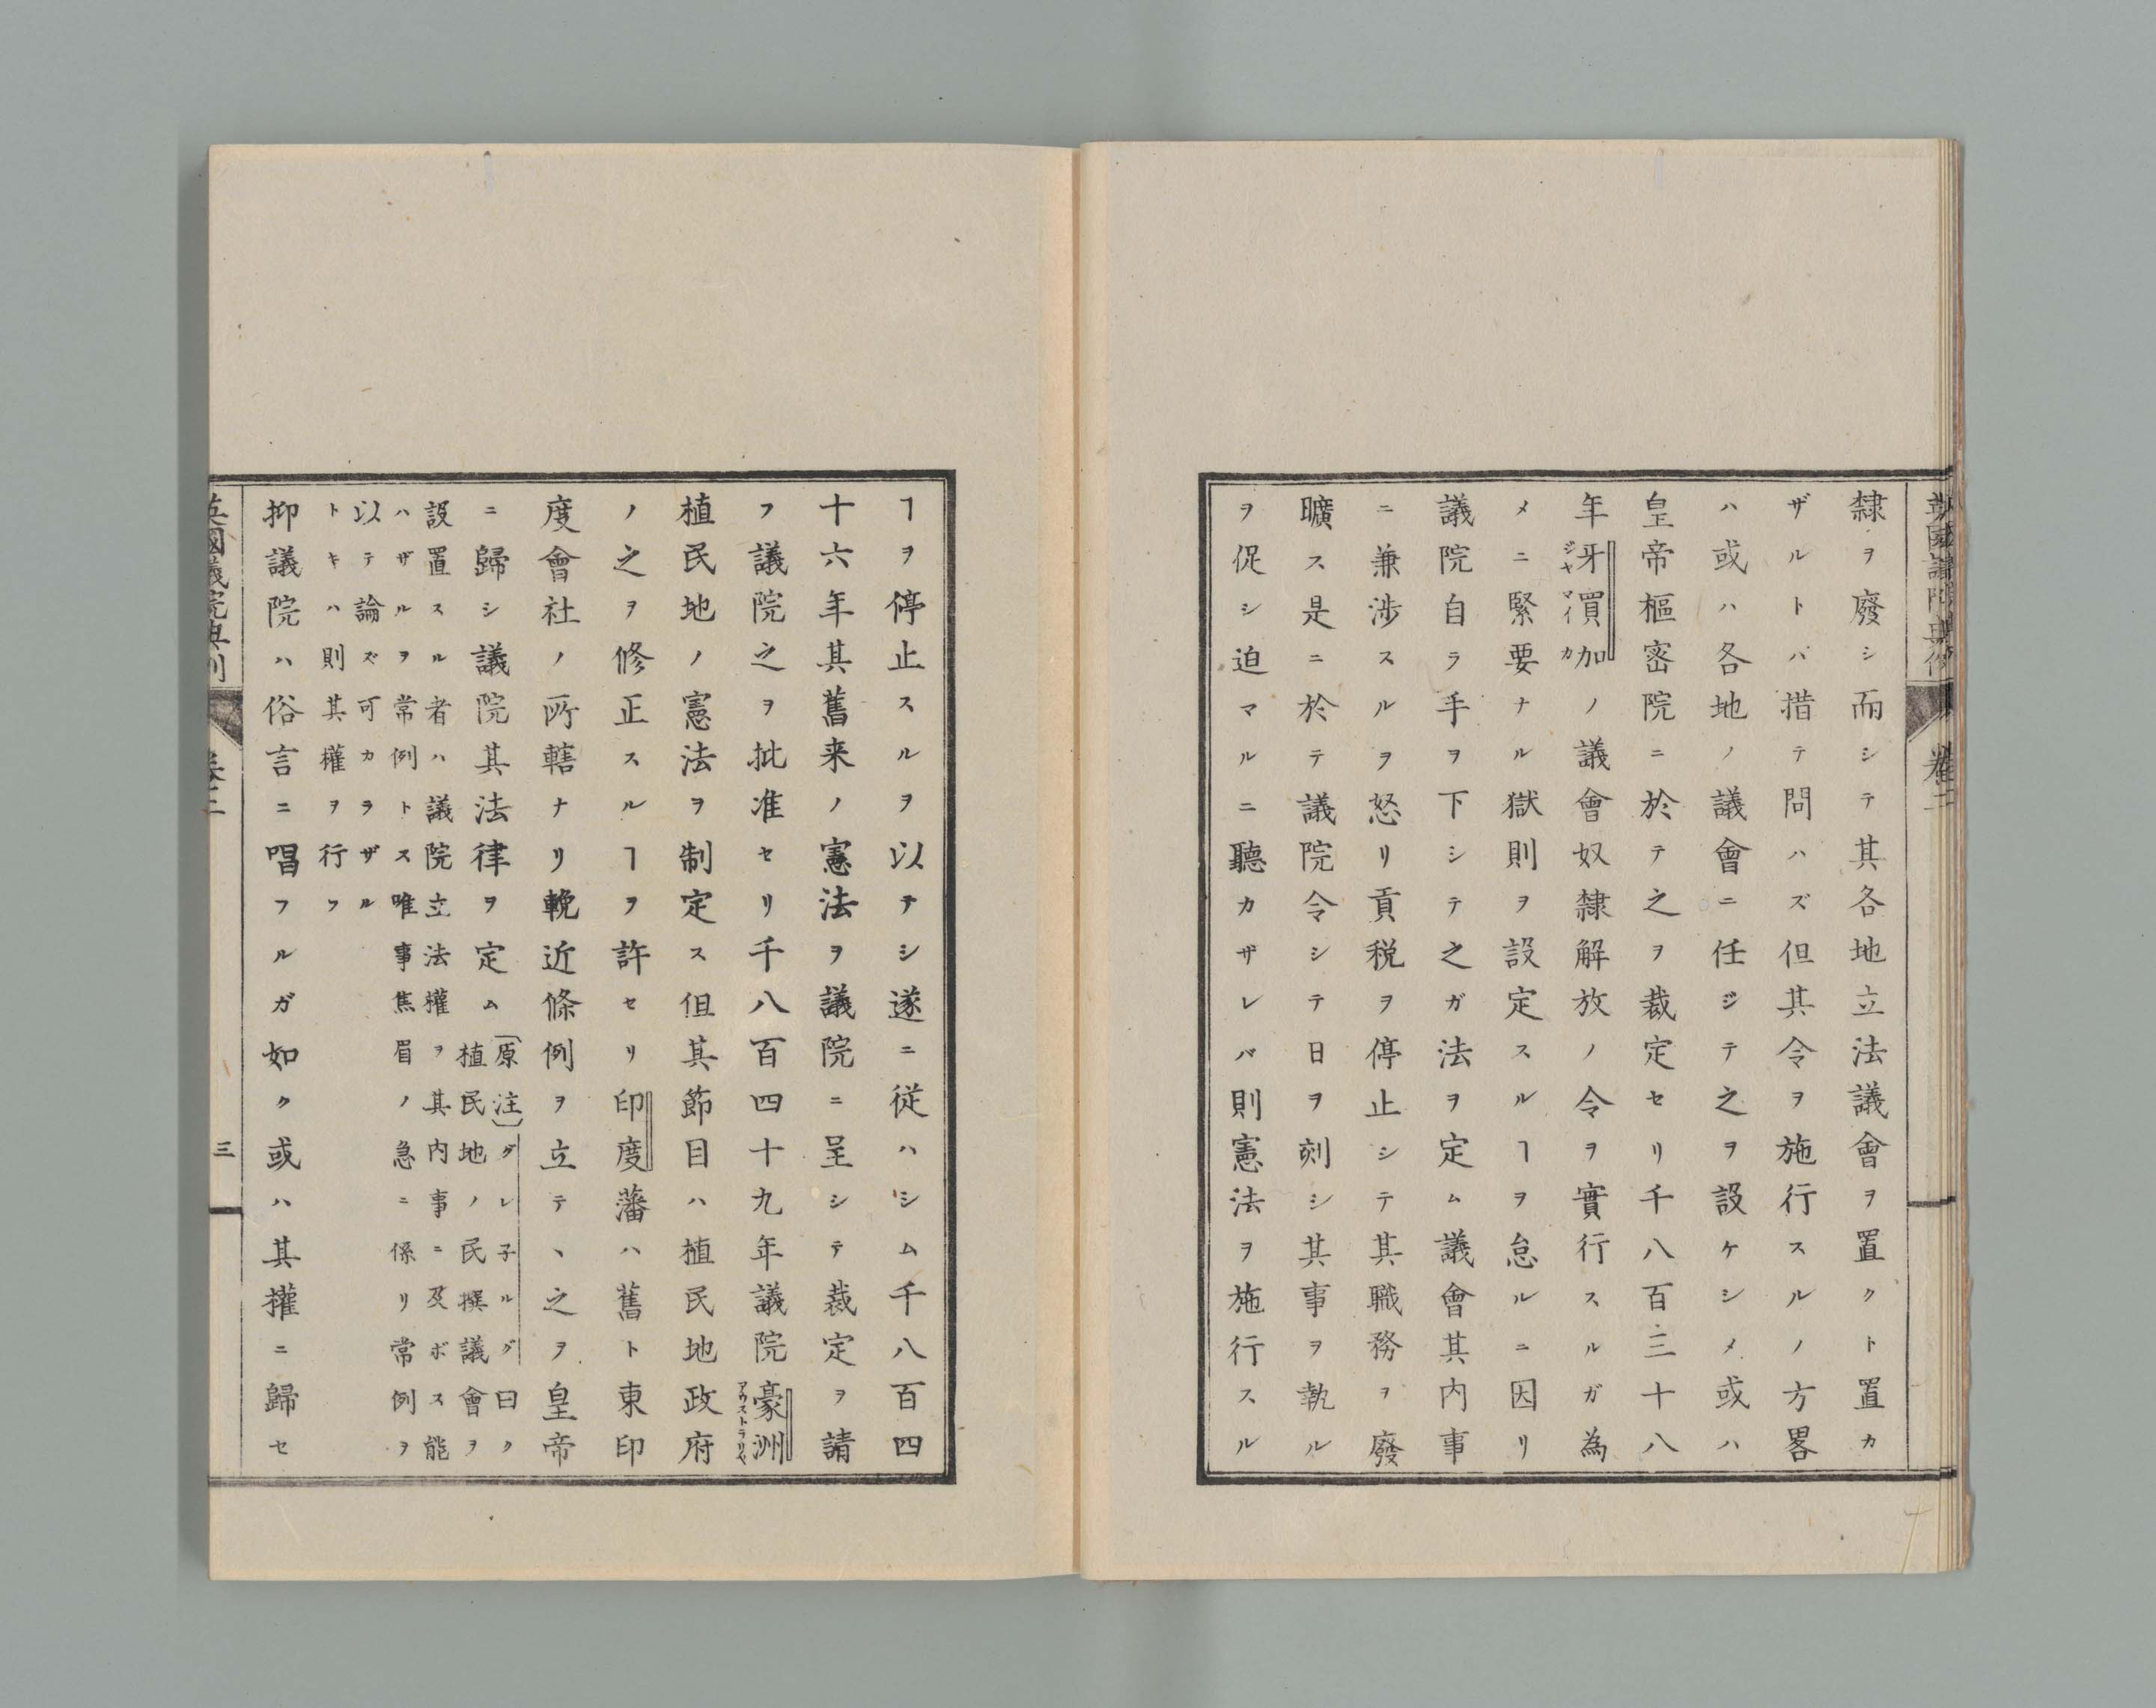 隸ヲ廢シ而シテ其各地立法議會ヲ置クト置カ
ザルトハ措テ問ハズ但其令ヲ施行スルノ方畧
ハ或ハ各地ノ議會ニ任ジテ之ヲ設ケシメ或ハ
皇帝樞密院ニ於テ之ヲ裁定セリ千八百三十八
年牙買加ノ議會奴隸解放ノ令ヲ實行スルガ為
ジヤマイカ
メニ緊要ナル獄則ヲ設定スルヿヲ怠ルニ因リ
議院自ラ手ヲ下シテ之ガ法ヲ定ム議會其内事
ニ兼渉スルヲ怒リ貢税ヲ停止シテ其職務ヲ廢
曠ス是ニ於テ議院令シテ日ヲ刻シ其事ヲ執ル
ヲ促シ迫マルニ聽カザレバ則憲法ヲ施行スル
ヿヲ停止スルヲ以テシ遂ニ従ハシム千八百四
十六年其舊来ノ憲法ヲ議院ニ呈シテ裁定ヲ請
フ議院之ヲ批准セリ千八百四十九年議院豪洲
アウストラリヤ
植民地ノ憲法ヲ制定ス但其節目ハ植民地政府
ノ之ヲ修正スルヿヲ許セリ印度藩ハ舊ト東印
度會社ノ所轄ナリ輓近條例ヲ立テヽ之ヲ皇帝
ニ歸シ議院其法律ヲ定ム
〔原注〕グレ子ルグ曰ク
植民地ノ民撰議會ヲ
設置スル者ハ議院立法權ヲ其内事ニ及ボス能
ハザルヲ常例トス唯事焦眉ノ急ニ係リ常例ヲ
以テ論ズ可カラザル
トキハ則其權ヲ行フ
抑議院ハ俗言ニ唱フルガ如ク或ハ其權ニ歸セ
英國議院典例
卷二
三